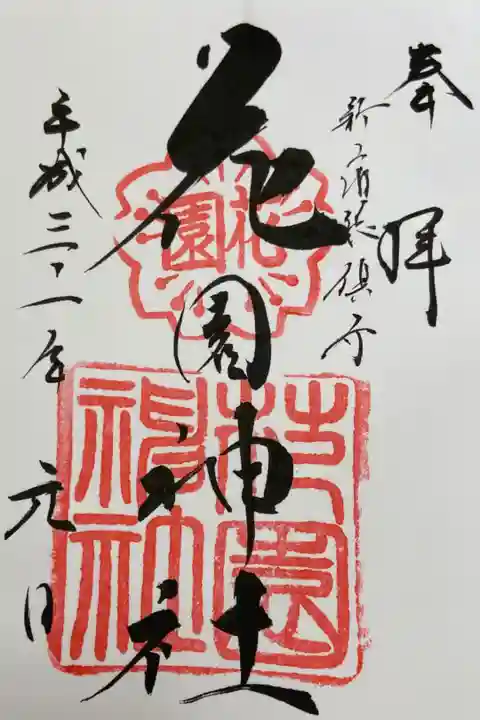 奉拝
新宿総鎮守
花園神社
平成三十一年
元日
花園
花園神社